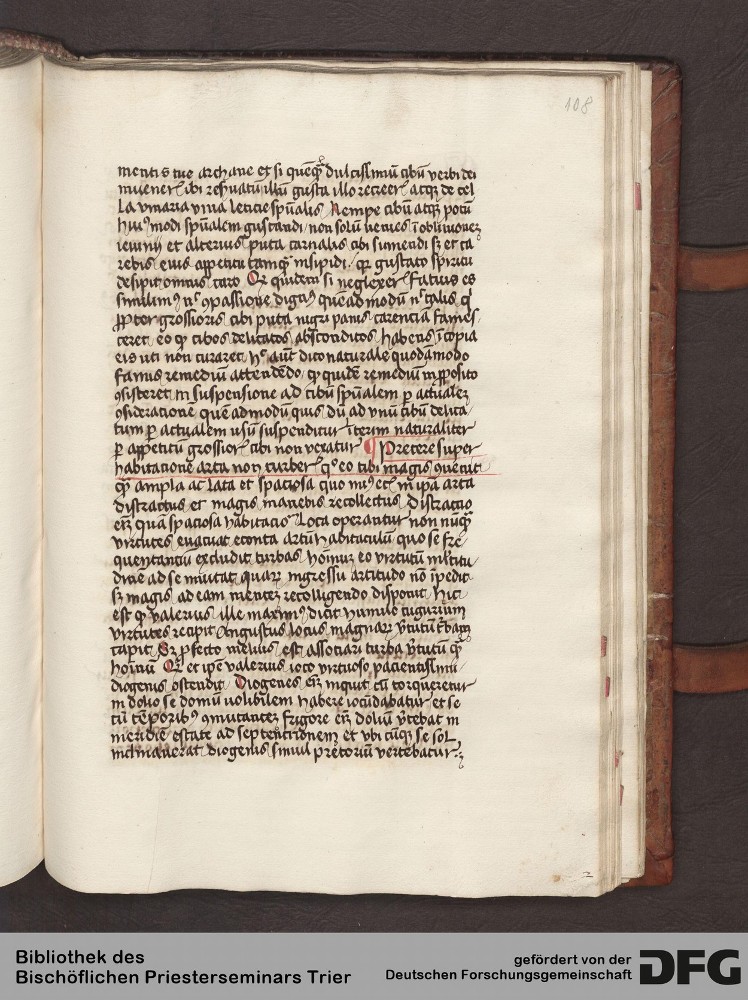 108
mentis tue archane et si quēq̄ dulcissimū cibū verbi dei
inuener̄ ibi reſuatū illū gusta illo recreer̄ atq; de cel
la vinaria viua leticie spūalis Nempe cibū atq; potū
huiꝰmodi spūalem gustandi non solū venies ī obliuionez
ieiunij et alterius puta carnalis cibi sumendi sꝫ et ca
rebis eius appetitu tamq̄ insipidi qꝛ gustato spiritu
desipit omnis caro Qꝛ quidem si neglexer̄ fatuus es
simulimꝰ nc̄ ꝯpassione dignꝰ quēadmodū nc̄ talis qͥ
ꝓpter grossioris cibi puta nigri panis carenciā fames
ceret eo qꝫ cibos delicatos absconditos habens ī copia
eis uti non curaret hoc aūt dico naturale quodāmodo
famis remediū attendēdo qꝫ quidē remediū in ꝓposito
ꝯsisteret in suspensione ad cibū spūalem ꝑ actualeꝫ
ꝯsideracionē quēadmodū quis dū ad vnū cibū delica
tum ꝑ actualem usū suspenditur iterum naturaliter
ꝑ appetitū grossior̄ cibi non vexatur ¶ Preterea super
habitacione arta non turber̄ qꝛ eo tibi magis ꝯuenit
qͣ ampla ac lata et spaciosa quo minꝰ etc̄ in ipā arta
distractus et magis manebis recollectus Distractio
em̄ quā spaciosa habitacio Loca operantur non nūqͣ
virtutes euacuat econtra artū habitaculū quo se fre
quentanciū excludit turbas hoīnuꝫ eo virtutū ml̓titu
dinē ad se inuitat quaꝝ ingressū artitudo nō īpedit
sꝫ magis ad eam mentez recolligendo disponit hīc
est qꝫ valerius ille maximꝰ dicit humile tugurium
virtutes recipit Angustus locus magnaꝝ v̓tutū t̓bam
capit Sꝫ ꝓfecto melius est associari turba v̓tutū qͣ
hoīnū Qꝛ et ipē valerius ioco virtuoso pacientissimi
diogenis ostendit Diogenes em̄ inquit cū torqueretur
in dolio se domū uolubilem habere iocūdabatur et se
cū tēporibꝰ ꝯmutantez frigore em̄ doliū v̓tebat in
meridiē estate ad septentrionem et vbicūqꝫ se sol
inclinauerat diogenis simul pretoriū vertebatur
Bibliothek des
Bischöflichen Priesterseminars Trier
gefördert von der
Deutschen Forschungsgemeinschaft
DFG